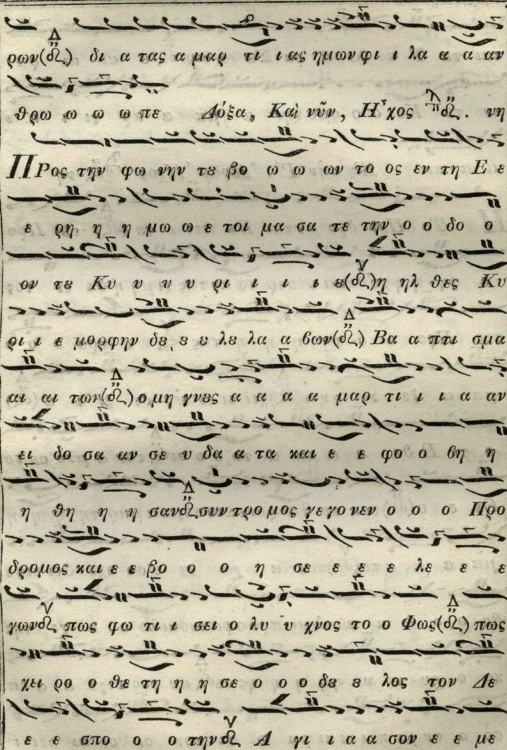 ρων(δ) δι α τας α μαρ τι ι ας ημων φι ι λα α α αν
θρω ω ω ω πε Δόξα, Καὶ νῦν, Ἦχος δ. νη
ΠΡος την φω νην τȣ βο ω ω ων το ος εν τη Ε ε
ε ρη η η μω ω ε τοι μα σα τε την ο ο δο ο
ον τȣ Κυ υ υ υ ρι ι ι ι ιε(δ)η ηλ θες Κυ
ρι ι ε μορφην δȣ ȣ ȣ λȣ λα α βων(δ) Βα α πτι σμα
αι αι των(δ) ο μη γνȣς α α α α μαρ τι ι ι α αν
ει δο σα αν σε υ δα α τα και ε ε φο ο βη η
η θη η η σαν δ συν τρο μος γε γο νεν ο ο ο Προ
δρομος και ε ε βο ο ο η σε ε ε ε λε ε ε
γων δ πως φω τι ι σει ο λυ υ χνος το ο Φως(δ) πως
χει ρο ο θε τη η η σε ο ο ο δȣ ȣ λος τον Δε
ε ε σπο ο ο την δ Α γι ι α α σον ε ε με